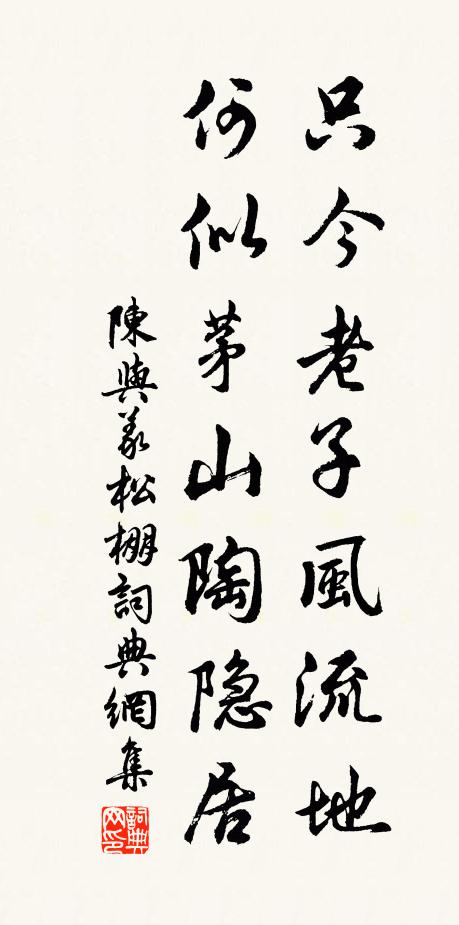 只今老子風流地
何似茅山陶隐居
陳與義松棚詞典網集
詞典網印